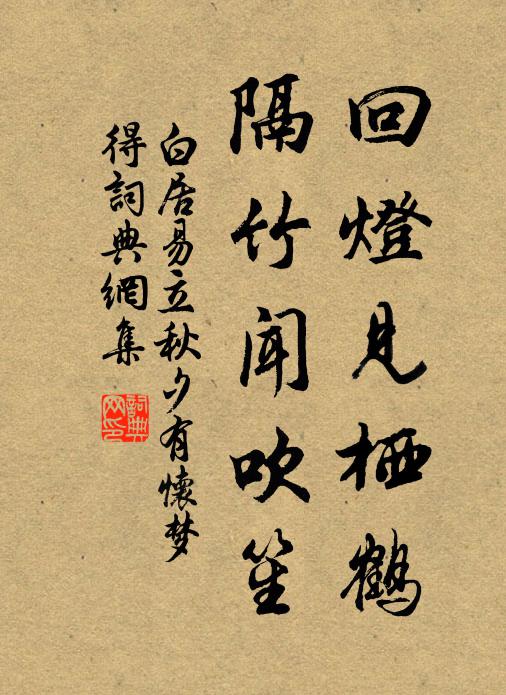 回燈見栖鶴
隔竹闻吹笙
白居易立秋夕有懷梦
得詞典網集
詞典
网印